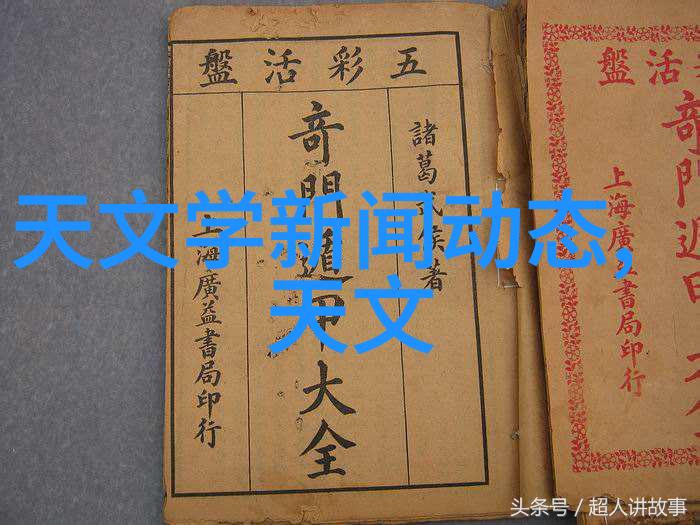 五彩活盤
諸葛武侯著
奇門遁甲大全
上海廣益書局印行
活盤
奇門遁
上海廣書局印行
天文学新闻动态,
天文
头条号 / 超人讲故事